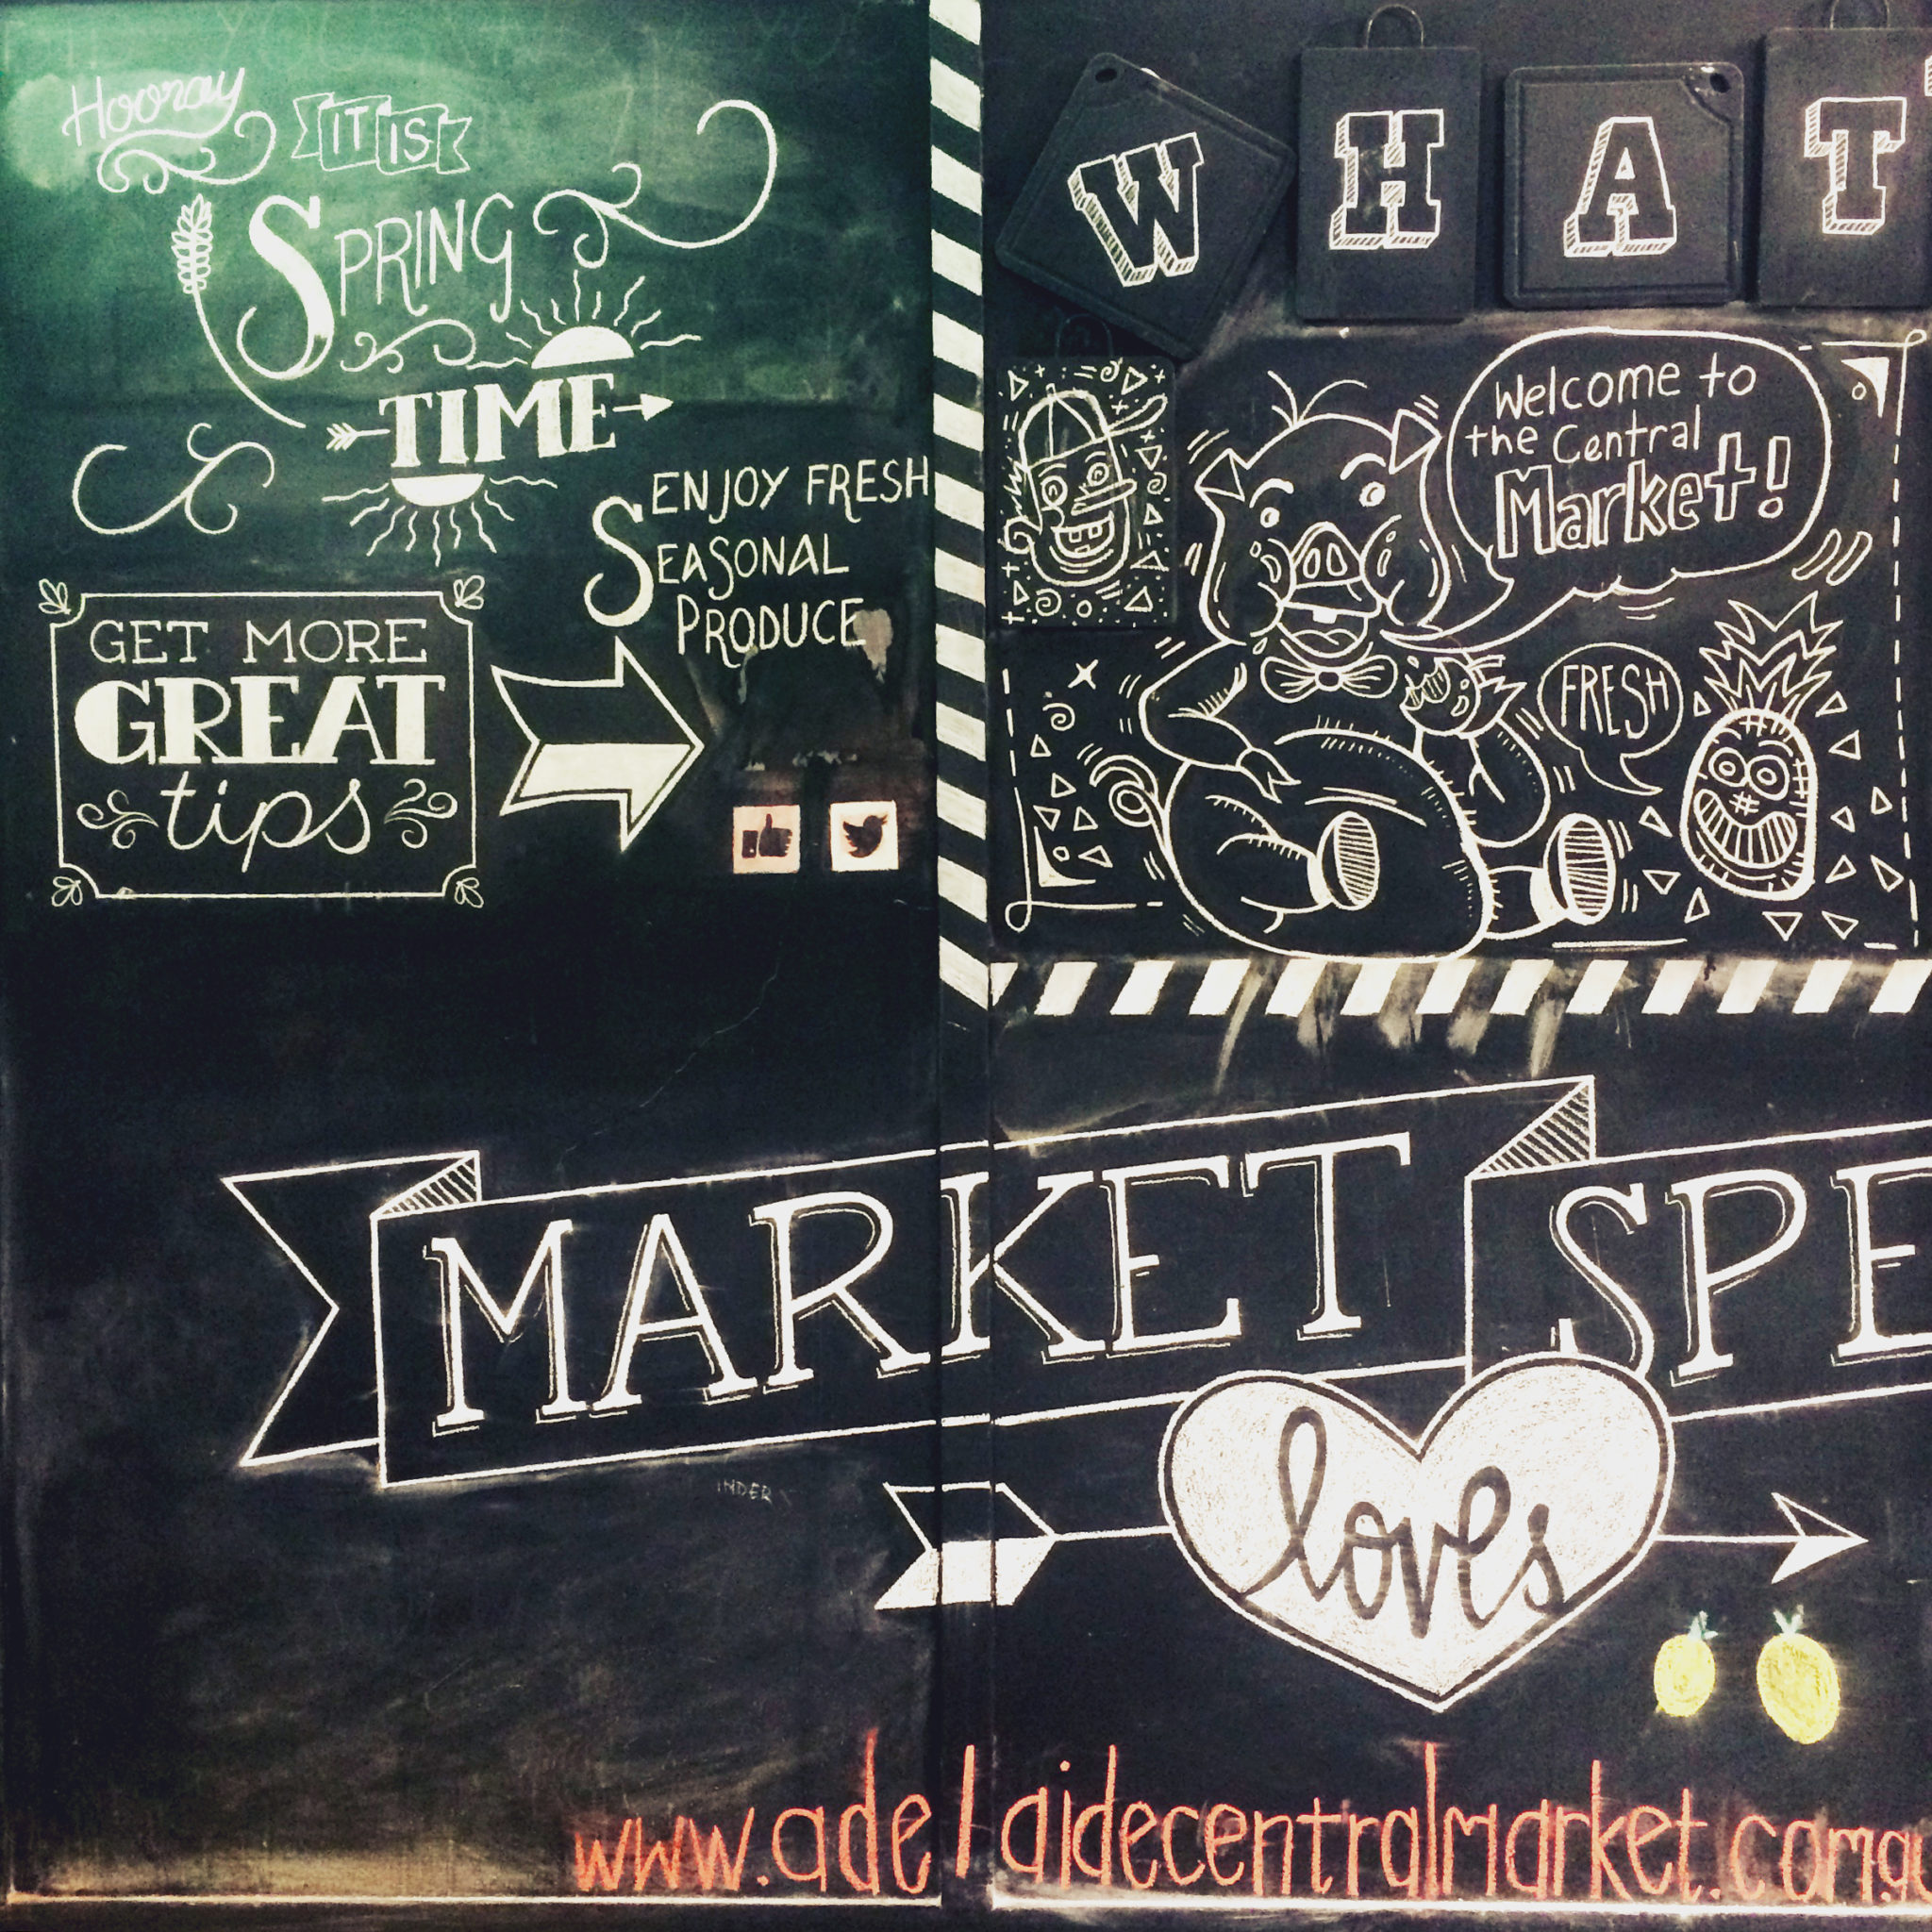 Hooray
IT IS
SPRING
TIME
ENJOY FRESH
SEASONAL
PRODUCE
GET MORE
GREAT
tips
WHAT
Welcome to
the Central
Market!
FRESH
MARKET SPE
loves
INDER
www.adelaidecentralmarket.com.au